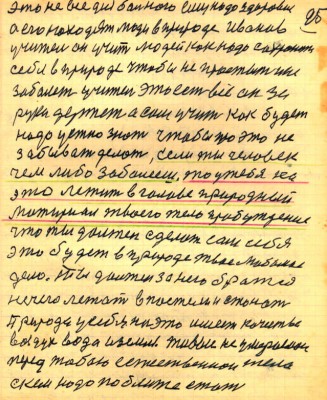 это не все для больного ему надо здоровья 25
а его находят люди в природе Иванов
учител он учит людей как надо сохранит
себя в природе чтобы не простыт и не
заболет учител этоест всё он за
руки держет а сам учит как будет
надо устно знат чтобы про это не
забыват делат, если ты человек
чем либо заболеш, то у тебя на
это летит в голове природный
матириал твоего тело пробуждение
что ты должен сделат сам себя
это будет в природе твое любимае
дело. Ты должен за него братся
нечего лежат в постели и стонат
Природа у себя на это имеет качества
воздух вода и земля. живые не умераемые
перед тобою естественное тела
с кем надо поближе стат